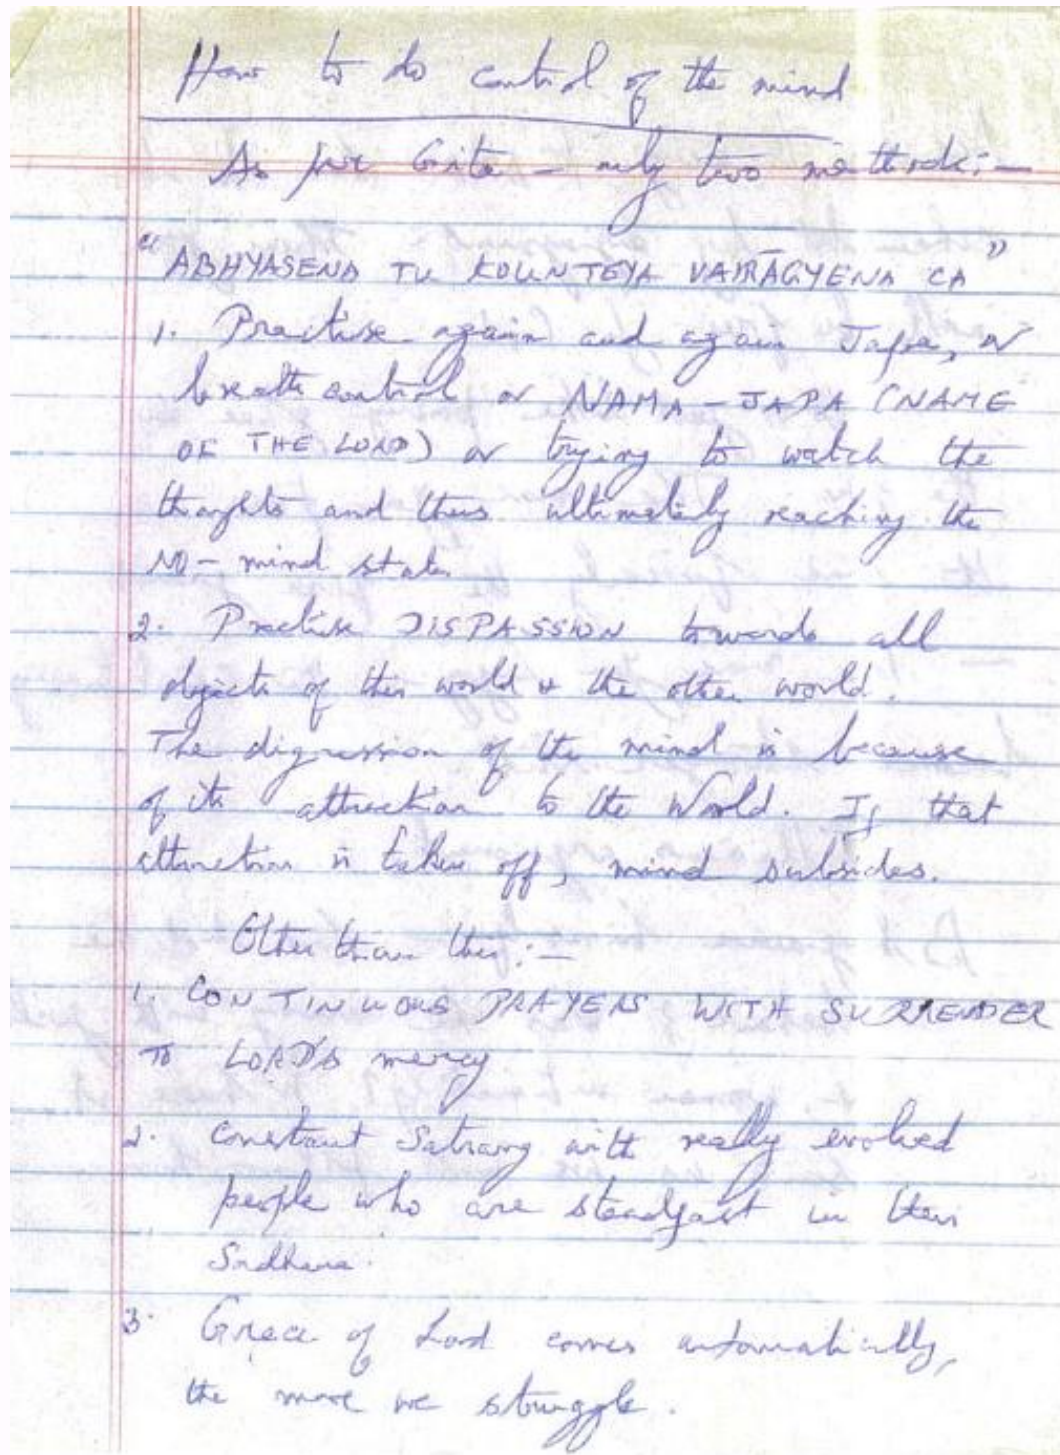 How to do control of the mind
As per Gita - only two methods:-
"ABHYASENA TU KOUNTEYA VAIRĀGYENA CA"
1. Practise again and again Japa, or
breath control or NAMA-JAPA (NAME
OF THE LORD) or trying to watch the
thoughts and thus ultimately reaching the
NO-mind state.
2. Practise DISPASSION towards all
objects of this world & the other world.
The digression of the mind is because
of its attraction to the World. If that
attraction is taken off, mind subsides.
Other than this:-
1. CONTINUOUS PRAYERS WITH SURRENDER
TO LORD'S mercy
2. Constant Satsang with really evolved
people who are steadfast in their
Sadhana.
3. Grace of Lord comes automatically,
the more we struggle.